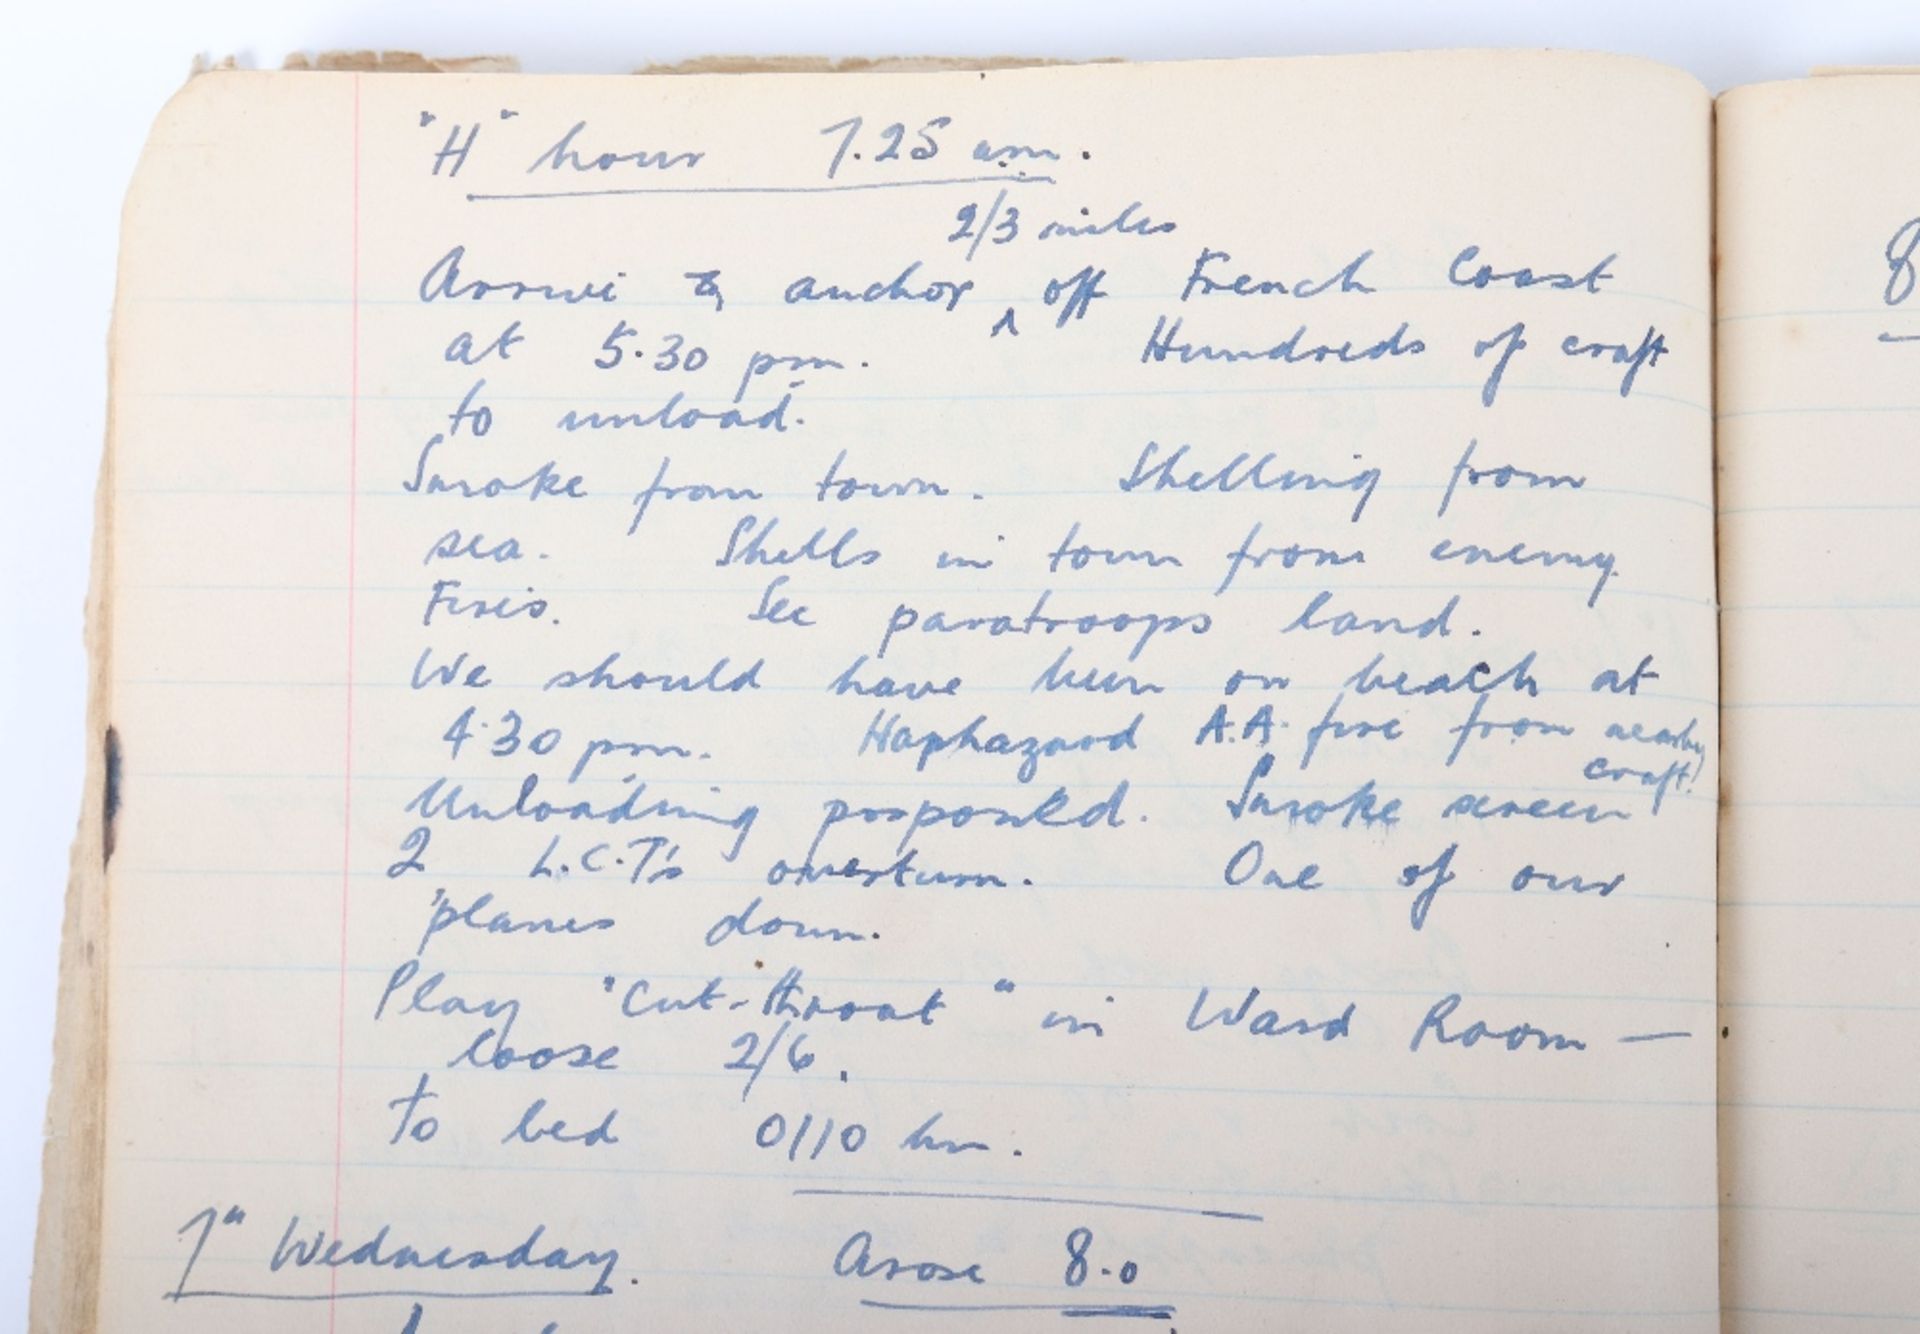 "H" hour 7.25 am.
2/3 miles
Arrive & anchor ^ off French Coast
at 5.30 pm. Hundreds of craft
to unload.
Smoke from town. Shelling from
sea. Shells in town from enemy.
Fires. See paratroops land.
We should have been on beach at
4.30 pm. Haphazard A.A. fire from nearby
craft!
Unloading posponed. Smoke screen
2 L.C.T's overturn. One of our
'planes down.
Play "Cut-throat" in Ward Room —
loose 2/6.
To bed 0110 hrs.
7" Wednesday. Arose 8.0
8